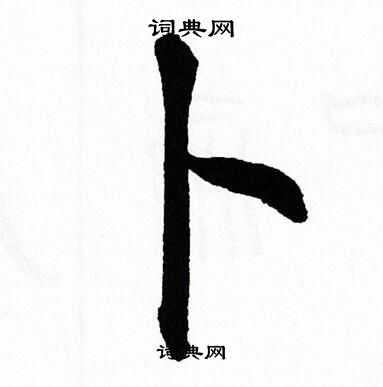 词典网
卜
词典网